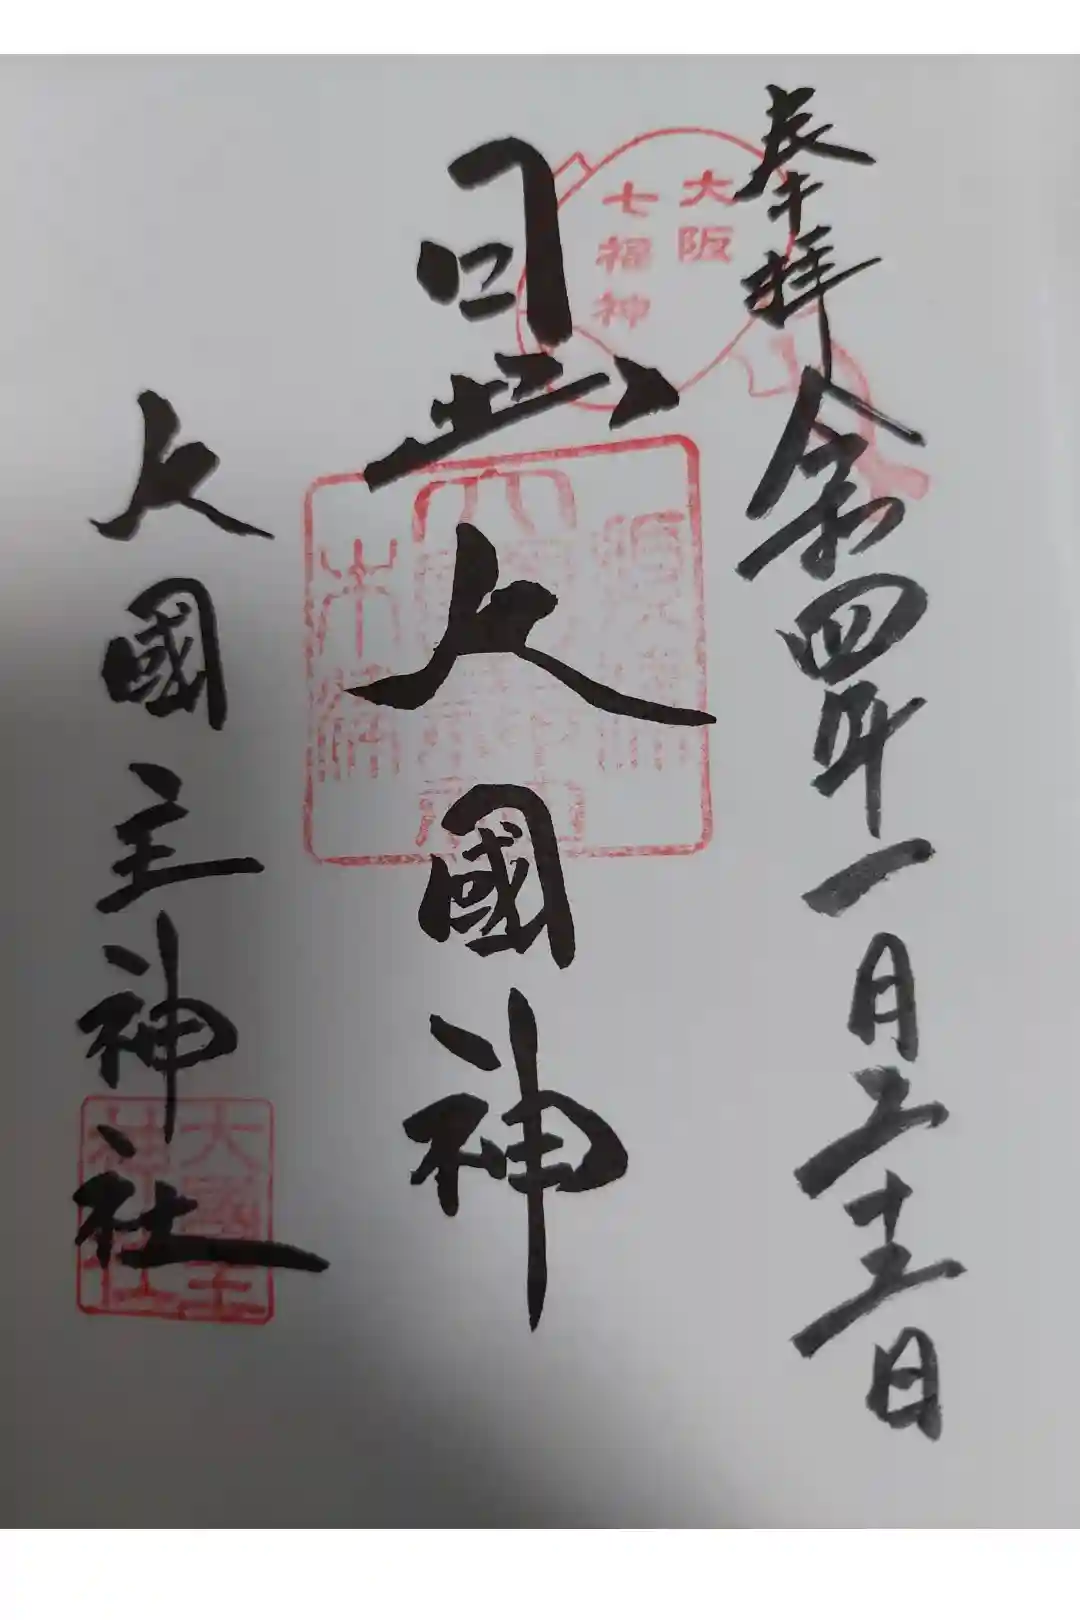 奉拝 令和四年一月二十三日
大阪
七福神
日出大國神
大國主神社
大國主
神社